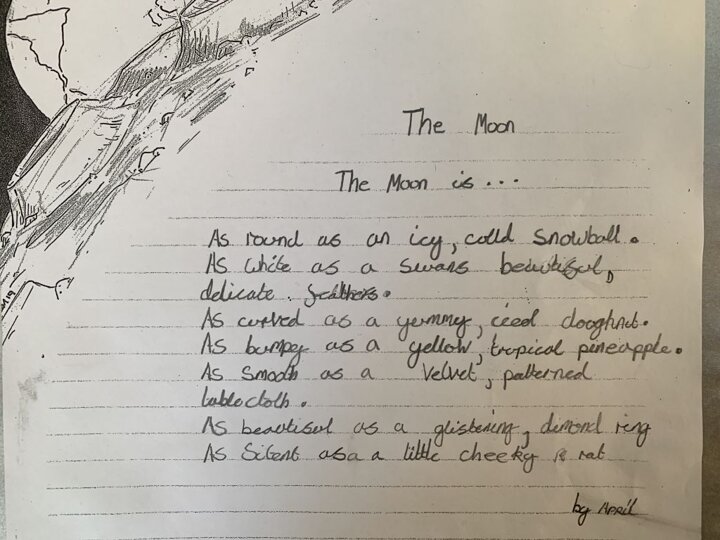 The Moon
The Moon is...
As round as an icy, cold snowball.
As white as a swans beautiful,
delicate feathers.
As curved as a yummy, iced doughnut.
As bumpy as a yellow, tropical pineapple.
As smooth as a velvet, patterned
tablecloth.
As beautiful as a glistening, dimond ring
As silent as a a little cheeky rat
by April